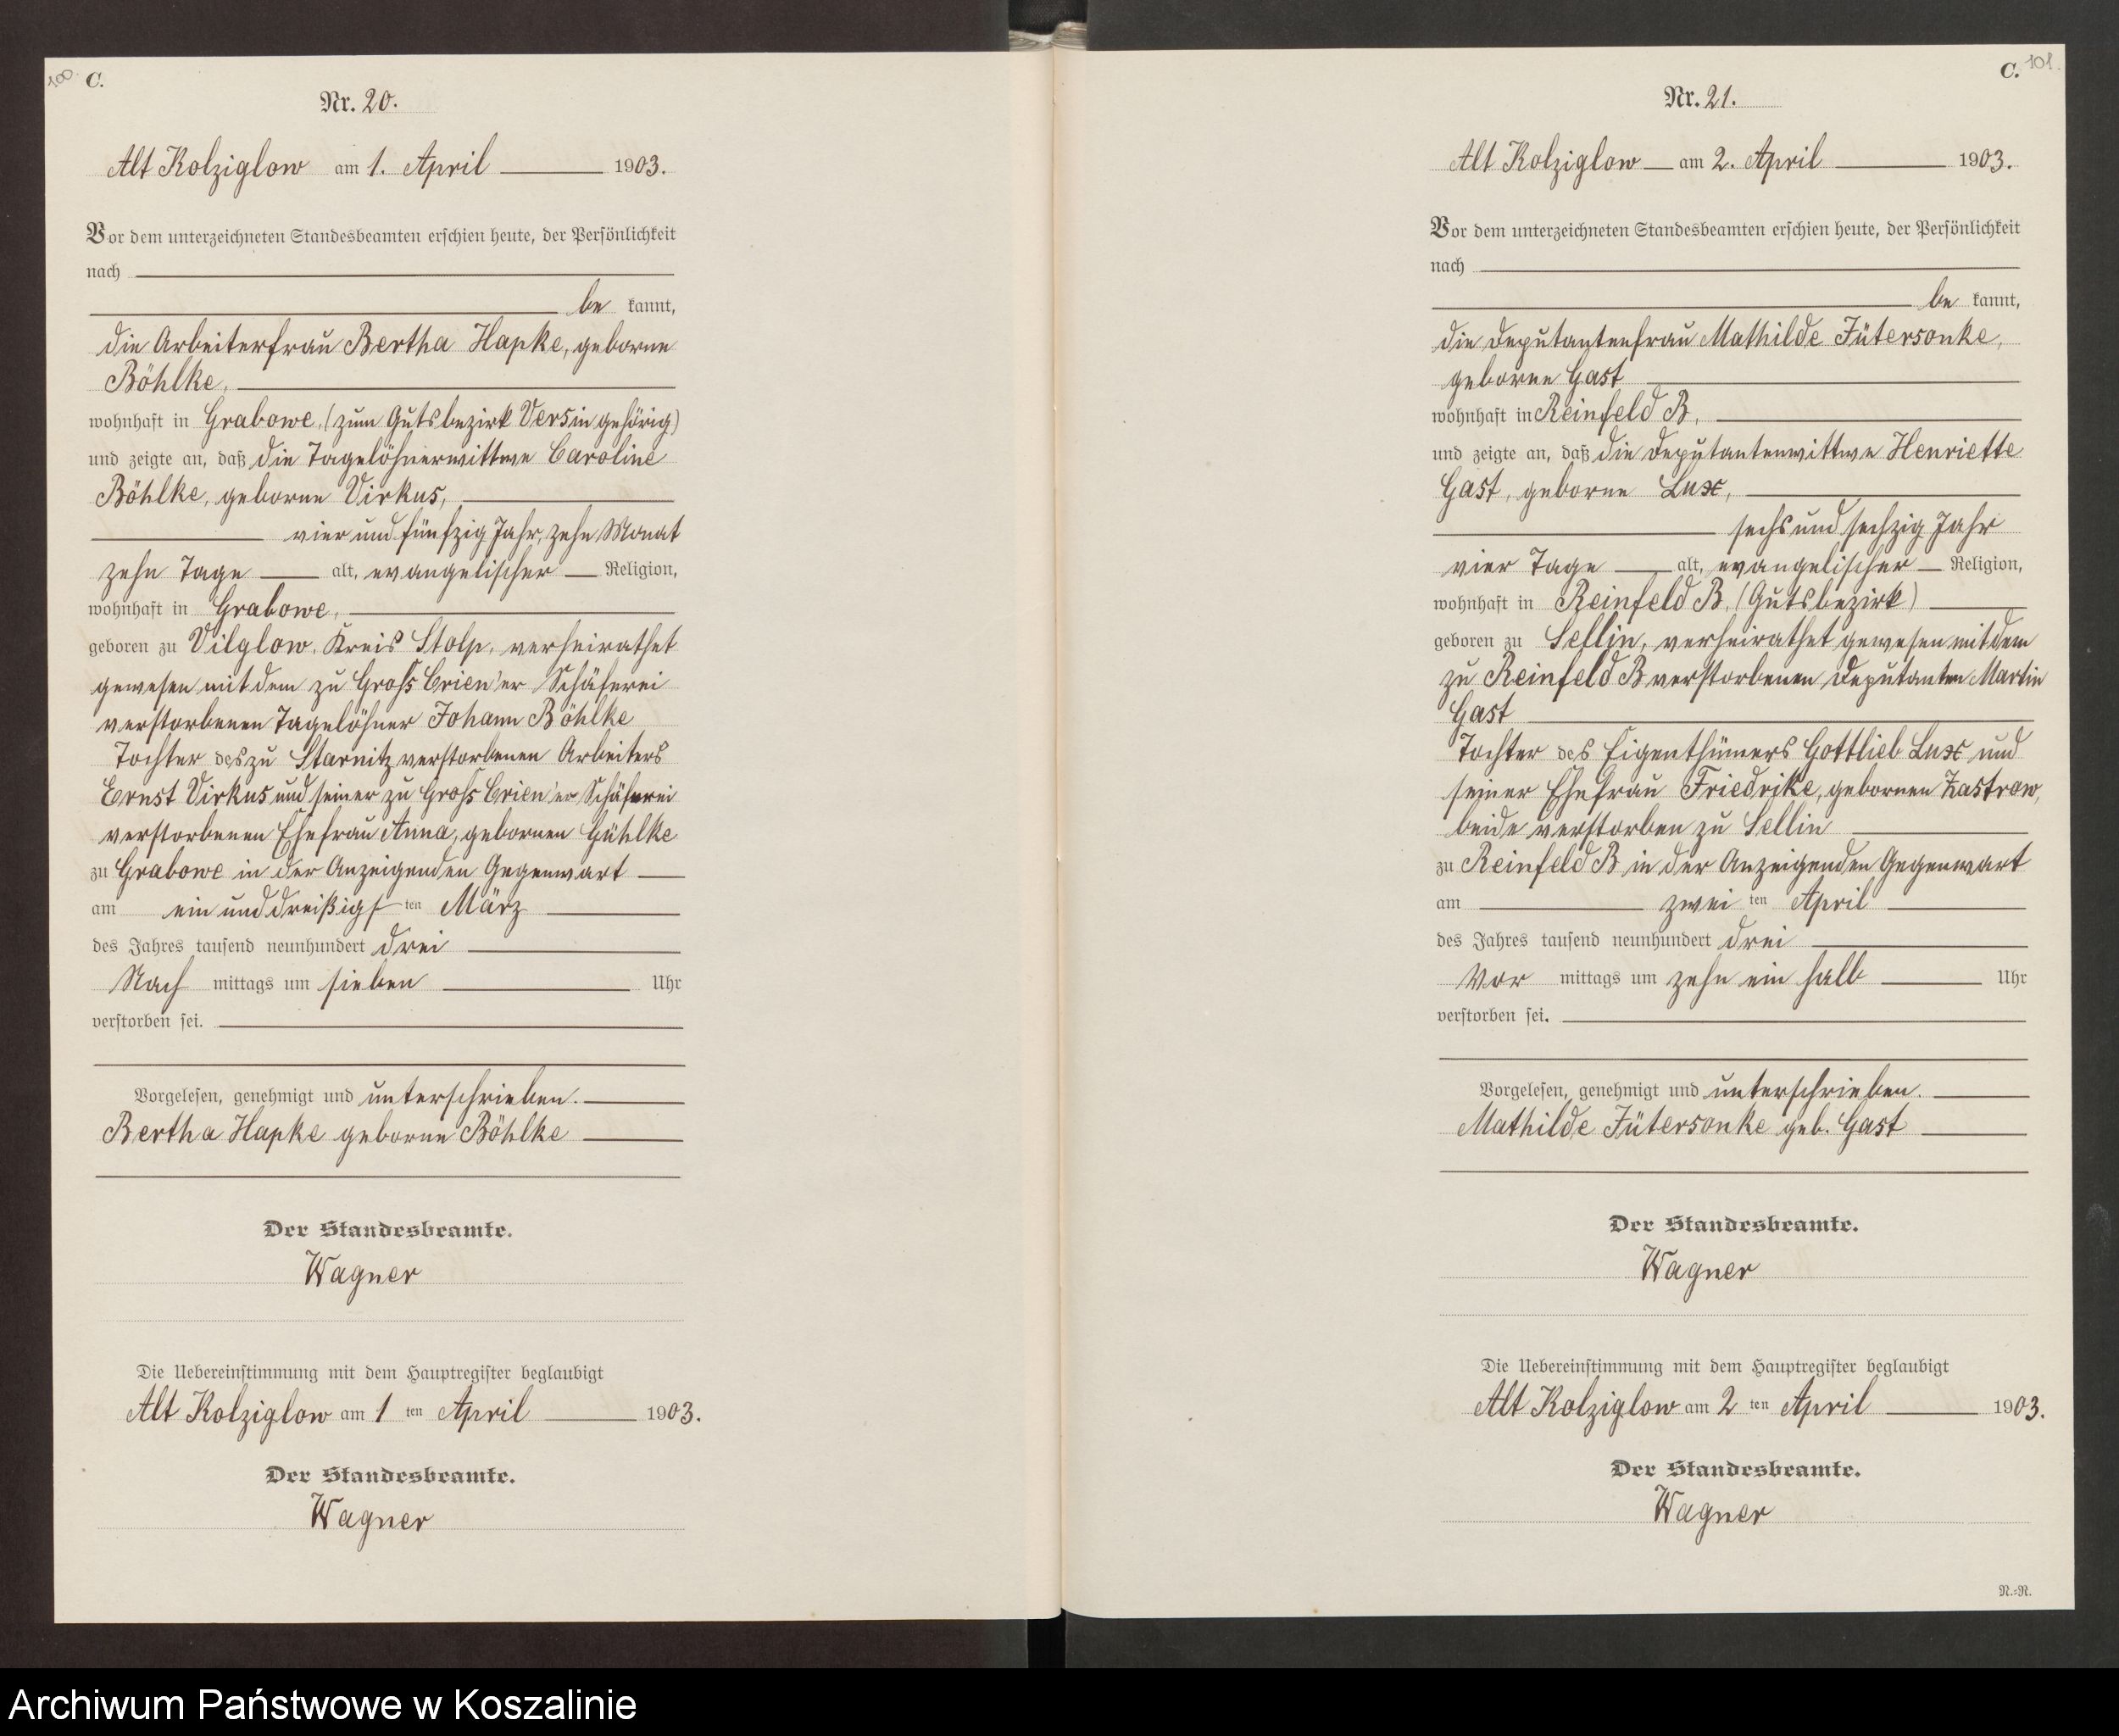 100.
C.
Nr. 20.
Alt Kolziglow am 1. April 1903.
Vor dem unterzeichneten Standesbeamten erschien heute, der Persönlichkeit
nach
be kannt,
die Arbeiterfrau Bertha Hapke, geborne
Böhlke,
wohnhaft in Grabowe, (zum Gutsbezirk Versin gehörig)
und zeigte an, daß die Tagelöhnerwittwe Caroline
Böhlke, geborne Virkus,
vier und fünfzig Jahr, zehn Monat
zehn Tage alt, evangelischer Religion,
wohnhaft in Grabowe,
geboren zu Vilglow, Kreis Stolp, verheirathet
gewesen mit dem zu Gross Crien'er Schäferei
verstorbenen Tagelöhner Johann Böhlke
Tochter des zu Starnitz verstorbenen Arbeiters
Ernst Virkus und seiner zu Gross Crien'er Schäferei
verstorbenen Ehefrau Anna, gebornen Gühlke
zu Grabowe in der Anzeigenden Gegenwart
am ein und dreißigsten März
des Jahres tausend neunhundert drei
Nach mittags um sieben Uhr
verstorben sei.
Vorgelesen, genehmigt und unterschrieben.
Bertha Hapke geborne Böhlke
Der Standesbeamte.
Wagner
Die Uebereinstimmung mit dem Hauptregister beglaubigt
Alt Kolziglow am 1 ten April 1903.
Der Standesbeamte.
Wagner
C. 101.
Nr. 21.
Alt Kolziglow am 2. April 1903.
Vor dem unterzeichneten Standesbeamten erschien heute, der Persönlichkeit
nach
be kannt,
die Deputantenfrau Mathilde Jütersonke,
geborne Gast
wohnhaft in Reinfeld B,
und zeigte an, daß die Deputantenwittwe Henriette
Gast, geborne Lux,
sechs und sechzig Jahr
vier Tage alt, evangelischer Religion,
wohnhaft in Reinfeld B, (Gutsbezirk)
geboren zu Sellin, verheirathet gewesen mit dem
zu Reinfeld B verstorbenen Deputanten Martin
Gast
Tochter des Eigenthümers Gottlieb Lux und
seiner Ehefrau Friedrike, gebornen Zastrow,
beide verstorben zu Sellin
zu Reinfeld B in der Anzeigenden Gegenwart
am zwei ten April
des Jahres tausend neunhundert drei
Vor mittags um zehn ein halb Uhr
verstorben sei.
Vorgelesen, genehmigt und unterschrieben.
Mathilde Jütersonke geb. Gast
Der Standesbeamte.
Wagner
Die Uebereinstimmung mit dem Hauptregister beglaubigt
Alt Kolziglow am 2 ten April 1903.
Der Standesbeamte.
Wagner
N.=N.
Archiwum Państwowe w Koszalinie